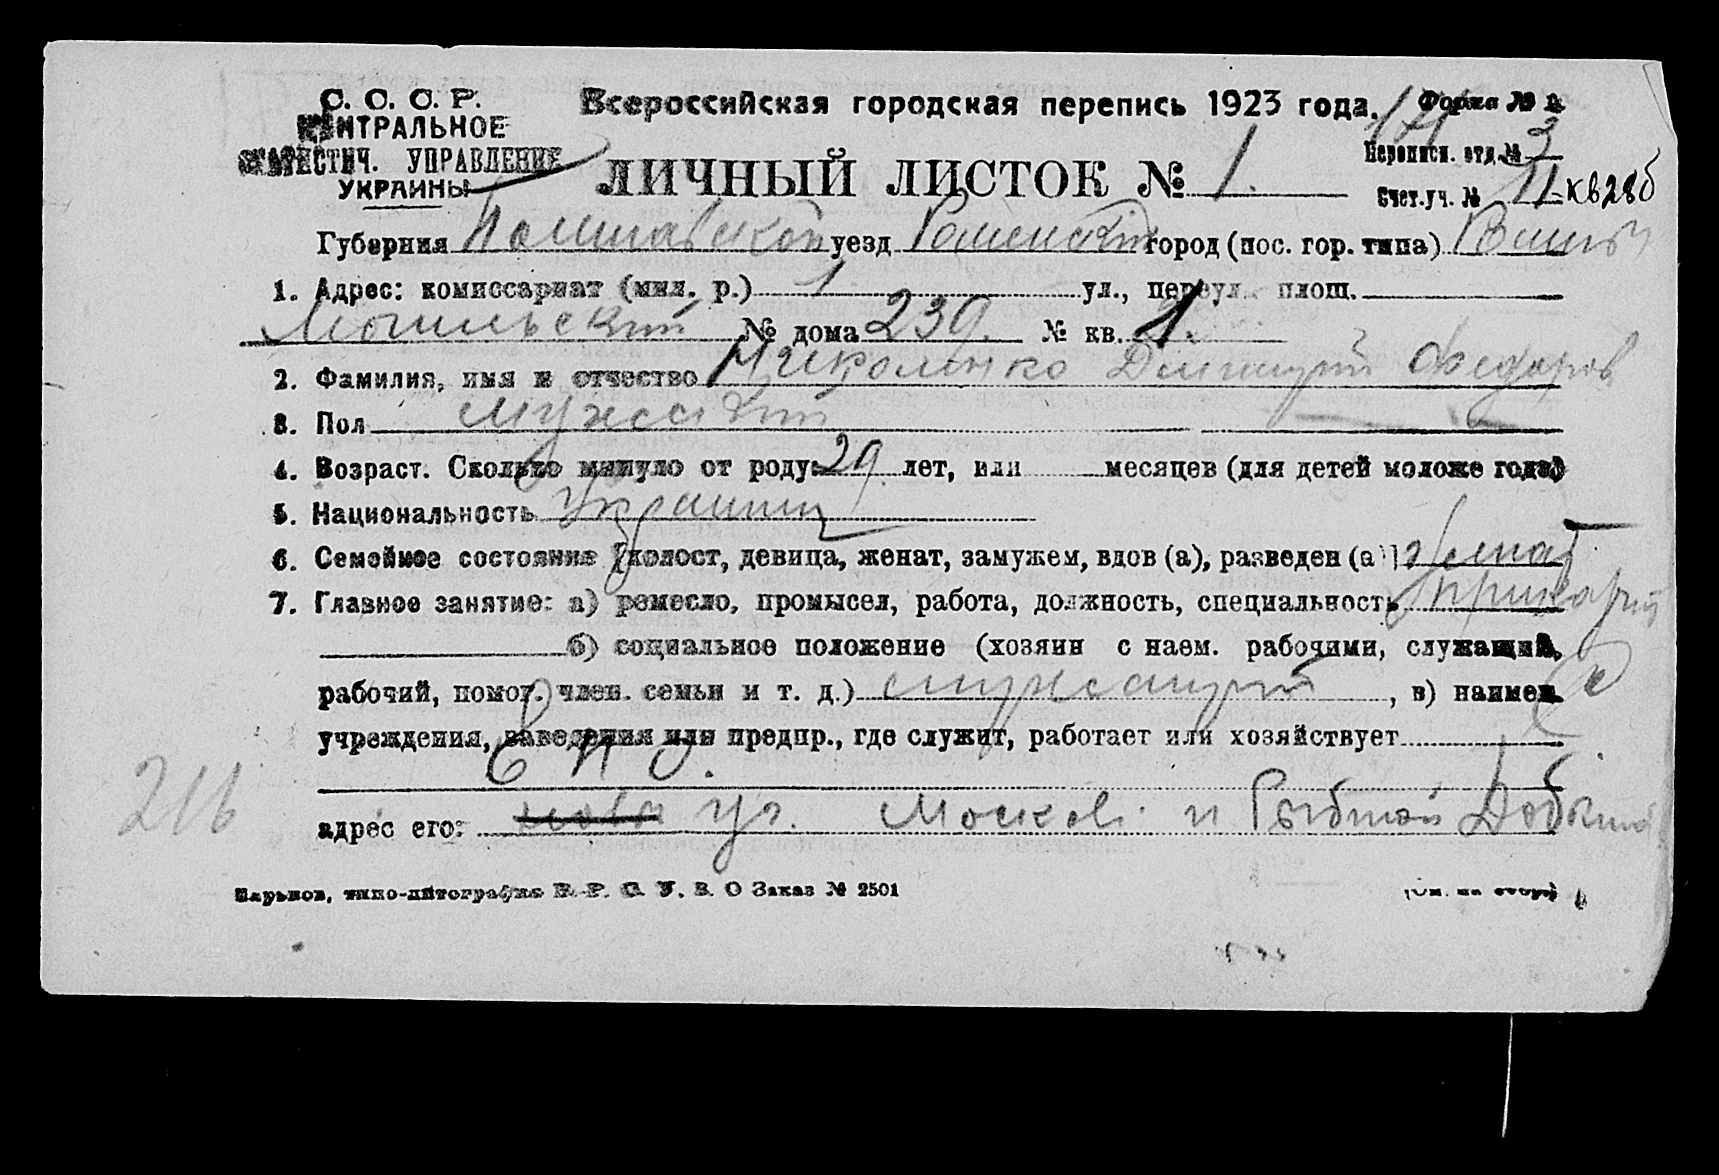 С. С. С. Р.
ЦЕНТРАЛЬНОЕ
СТАТИСТИЧ. УПРАВЛЕНИЕ
УКРАИНЫ
Всероссийская городская перепись 1923 года.
Форма № 2
174
Переписн. отд. № 3
ЛИЧНЫЙ ЛИСТОК № 1.
Счет. уч. № 11 кв 28б
Губерния Полтавской уезд Роменский город (пос. гор. типа) Ромны
1. Адрес: комиссариат (мил. р.) 1 ул., переул. площ.
№ дома 239. № кв. 1.
2. Фамилия, имя и отчество Николенко Димитрий Федоров
3. Пол мужский
4. Возраст. Сколько минуло от роду: 29 лет, или месяцев (для детей моложе года)
5. Национальность украинец
6. Семейное состояние [холост, девица, женат, замужем, вдов (а), разведен (а)] женат
7. Главное занятие: а) ремесло, промысел, работа, должность, специальность
б) социальное положение (хозяин с наем. рабочими, служащий,
рабочий, помог. член. семьи и т. д.) служащий, в) наимен.
учреждения, заведения или предпр., где служит, работает или хозяйствует
Е П О.
216
адрес его: уг. Москов. и
Харьков, типо-литография В. Р. С. У. В. О Заказ № 2501
(См. на обор.)